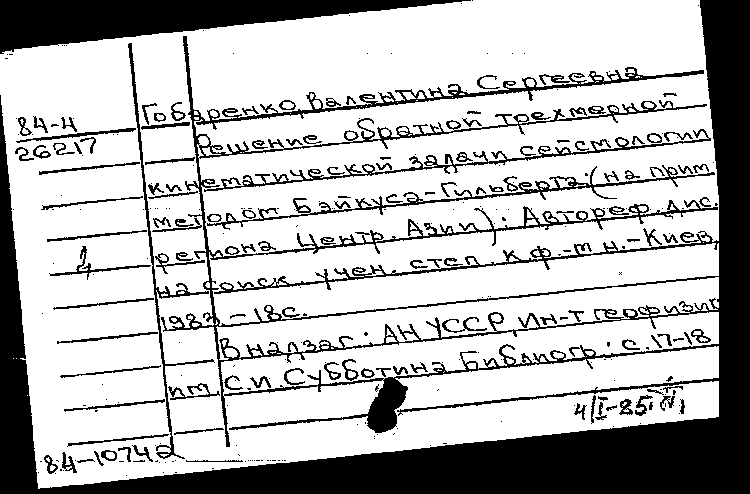 84-4
26217
Гобаренко, Валентина Сергеевна
Решение обратной трехмерной
кинематической задачи сейсмологии
методом Бэйкуса-Гильберта: (на прим.
региона Центр. Азии): Автореф. дис.
на соиск. учен. степ. к.ф.-м.н.-Киев,
1983.-18с.
В надзаг: АН УССР, Ин-т геофизики
им. С.И. Субботина Библиогр: с.17-18
84-10742